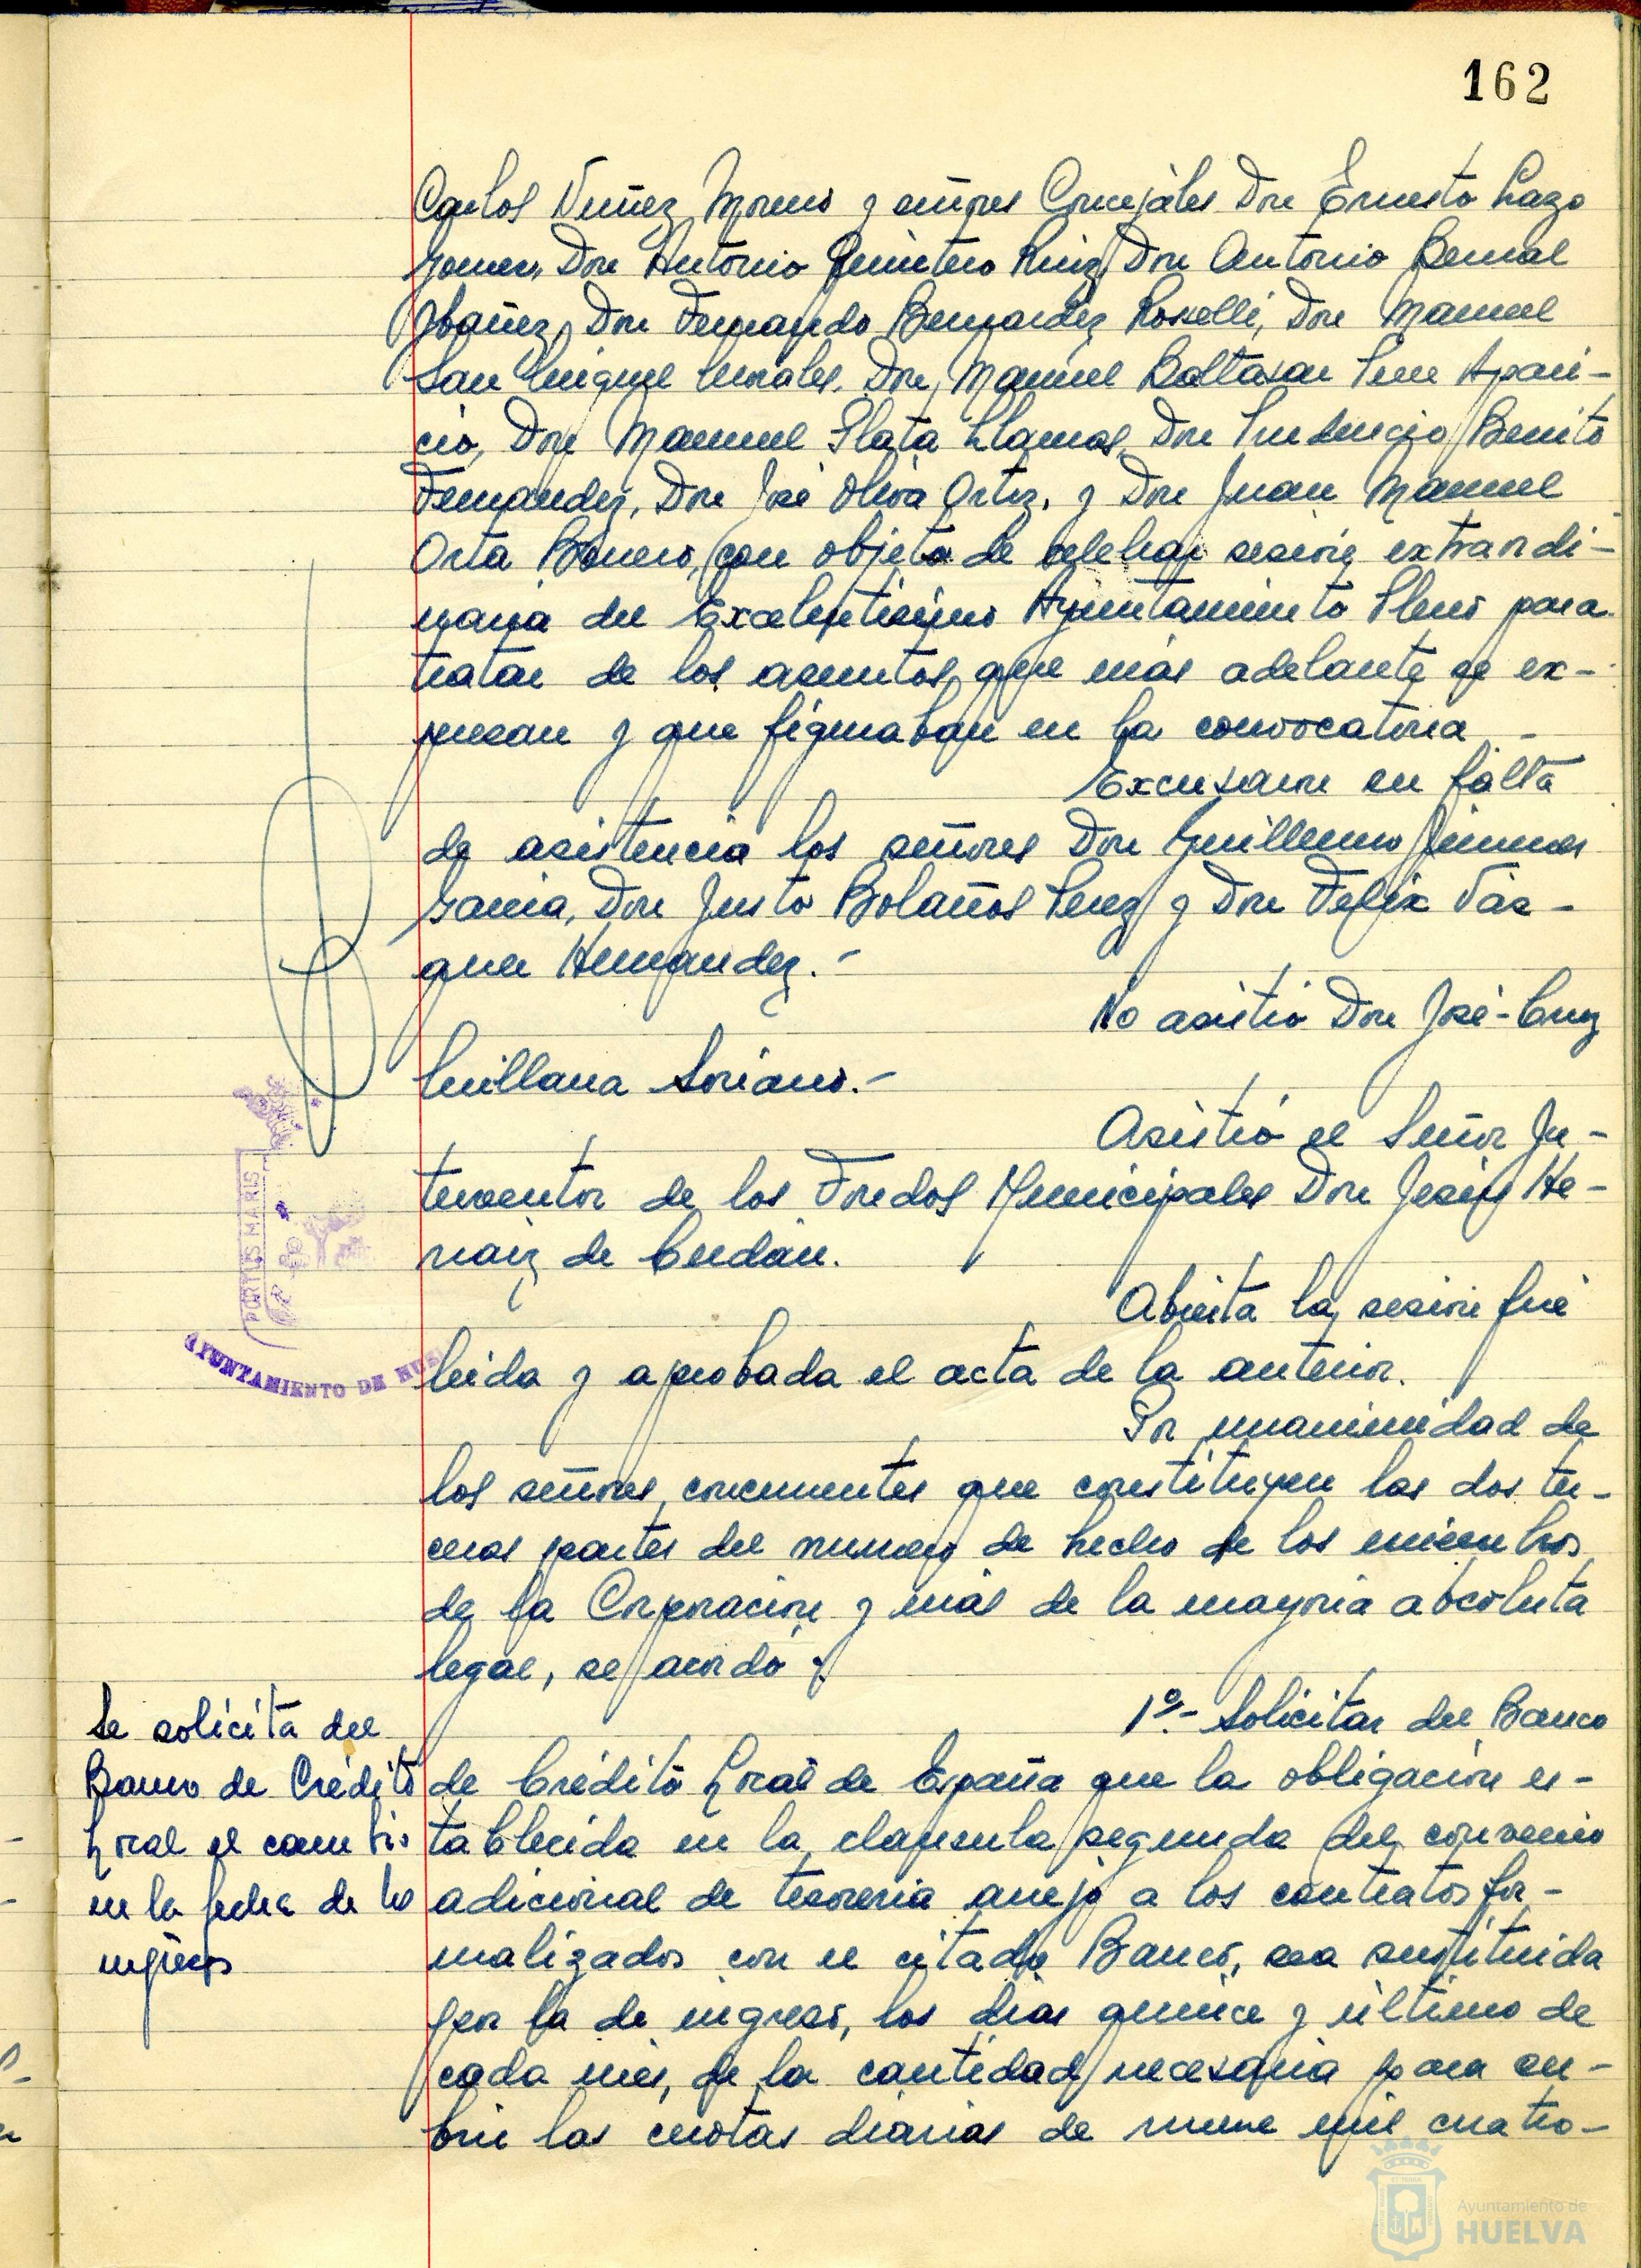 162
Carlos Nuñez Moreno y señores Concejales Don Ernesto Lazo
Gomez, Don Antonio Quintero Ruiz, Don Antonio Bernal
Ibañez, Don Fernando Bermudez Rosselli, Don Manuel
San Miguel Morales, Don Manuel Baltasar Pere Apari-
cio, Don Manuel Plata Llamas, Don Prudencio Benito
Fernandez, Don José Oliva Ortiz, y Don Juan Manuel
Orta Borrero, con objeto de celebrar sesión extraordi-
naria del Excelentisimo Ayuntamiento Pleno para
tratar de los asuntos que más adelante se ex-
presan y que figuraban en la convocatoria -
Excusaron su falta
de asistencia los señores Don Guillermo Jimenez
Garcia, Don Justo Bolaños Perez y Don Felix Váz-
quez Hernandez.-
No asistió Don José-Cruz
Quillana Soriano.-
Asistió el Señor In-
terventor de los Fondos Municipales Don Jesús He-
rraiz de
Abierta la sesión fué
PORTUS MARIS
AYUNTAMIENTO DE HUE
leida y aprobada el acta de la anterior.
Por unanimidad de
los señores concurrentes que constituyen las dos ter-
ceras partes del numero de hecho de los miembros
de la Corporación y más de la mayoria absoluta
legal, se acordó:
1º.- Solicitar del Banco
Se solicita del
Banco de Crédito
Local el cambio
en la fecha de los
ingresos
de Crédito Local de España que la obligación es-
tablecida en la clausula segunda del convenio
adicional de tesoreria anejo a los contratos for-
malizados con el citado Banco, sea sustituida
por la de ingreso, los dias quince y último de
cada mes, de la cantidad necesaria para cu-
brir las cuotas diarias de nueve mil cuatro-
Ayuntamiento de
HUELVA